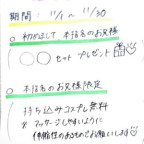 期間：11/1 〜 11/30
○ 初めまして 本指名のお客様
◯◯セット プレゼント
○ 本指名のお客様限定
持ち込みコスプレ無料
※マッサージしやすいように
伸縮性のあるものでお願いします